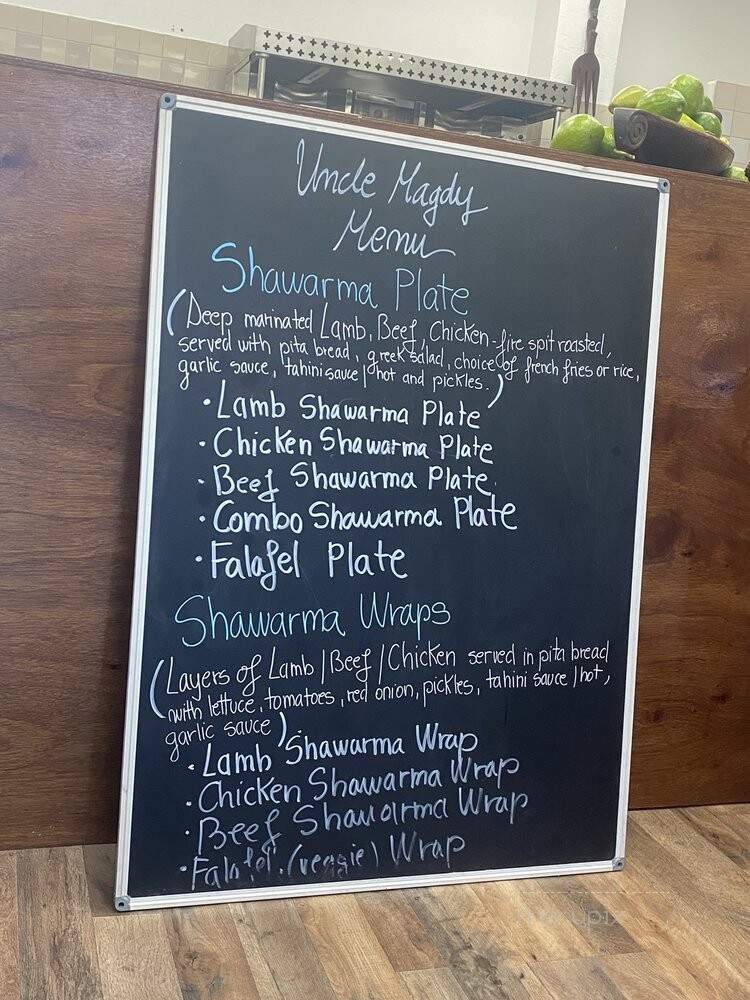 Uncle Magdy
Menu
Shawarma Plate
(Deep marinated Lamb, Beef, Chicken-fire spit roasted,
served with pita bread, greek salad, choice of french fries or rice,
garlic sauce, tahini sauce / hot and pickles.)
• Lamb Shawarma Plate
• Chicken Shawarma Plate
• Beef Shawarma Plate
• Combo Shawarma Plate
• Falafel Plate
Shawarma Wraps
(Layers of Lamb / Beef / Chicken served in pita bread
with lettuce, tomatoes, red onion, pickles, tahini sauce / hot,
garlic sauce).
• Lamb Shawarma Wrap
• Chicken Shawarma Wrap
• Beef Shawarma Wrap
• Falafel (veggie) Wrap